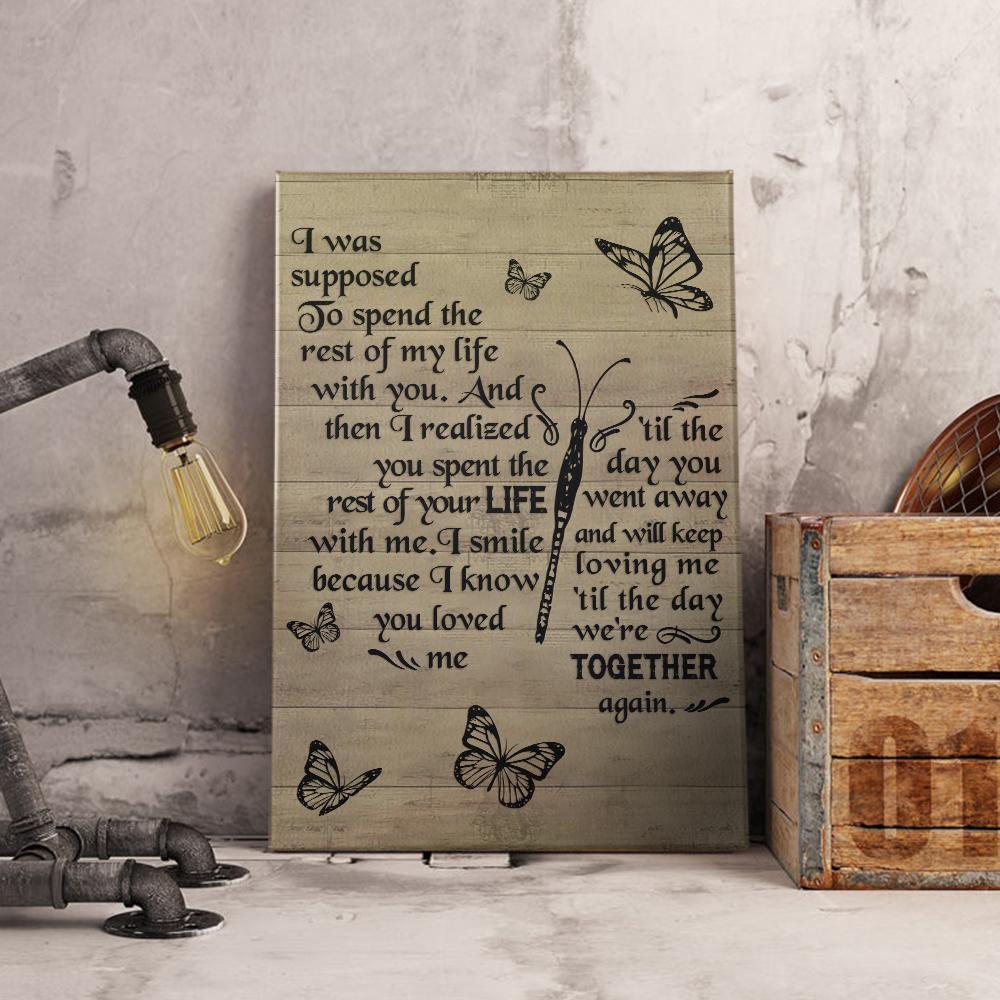 I was
supposed
To spend the
rest of my life
with you. And
then I realized
you spent the
rest of your LIFE
with me. I smile
because I know
you loved
me
'til the
day you
went away
and will keep
loving me
'til the day
we're
TOGETHER
again.
01